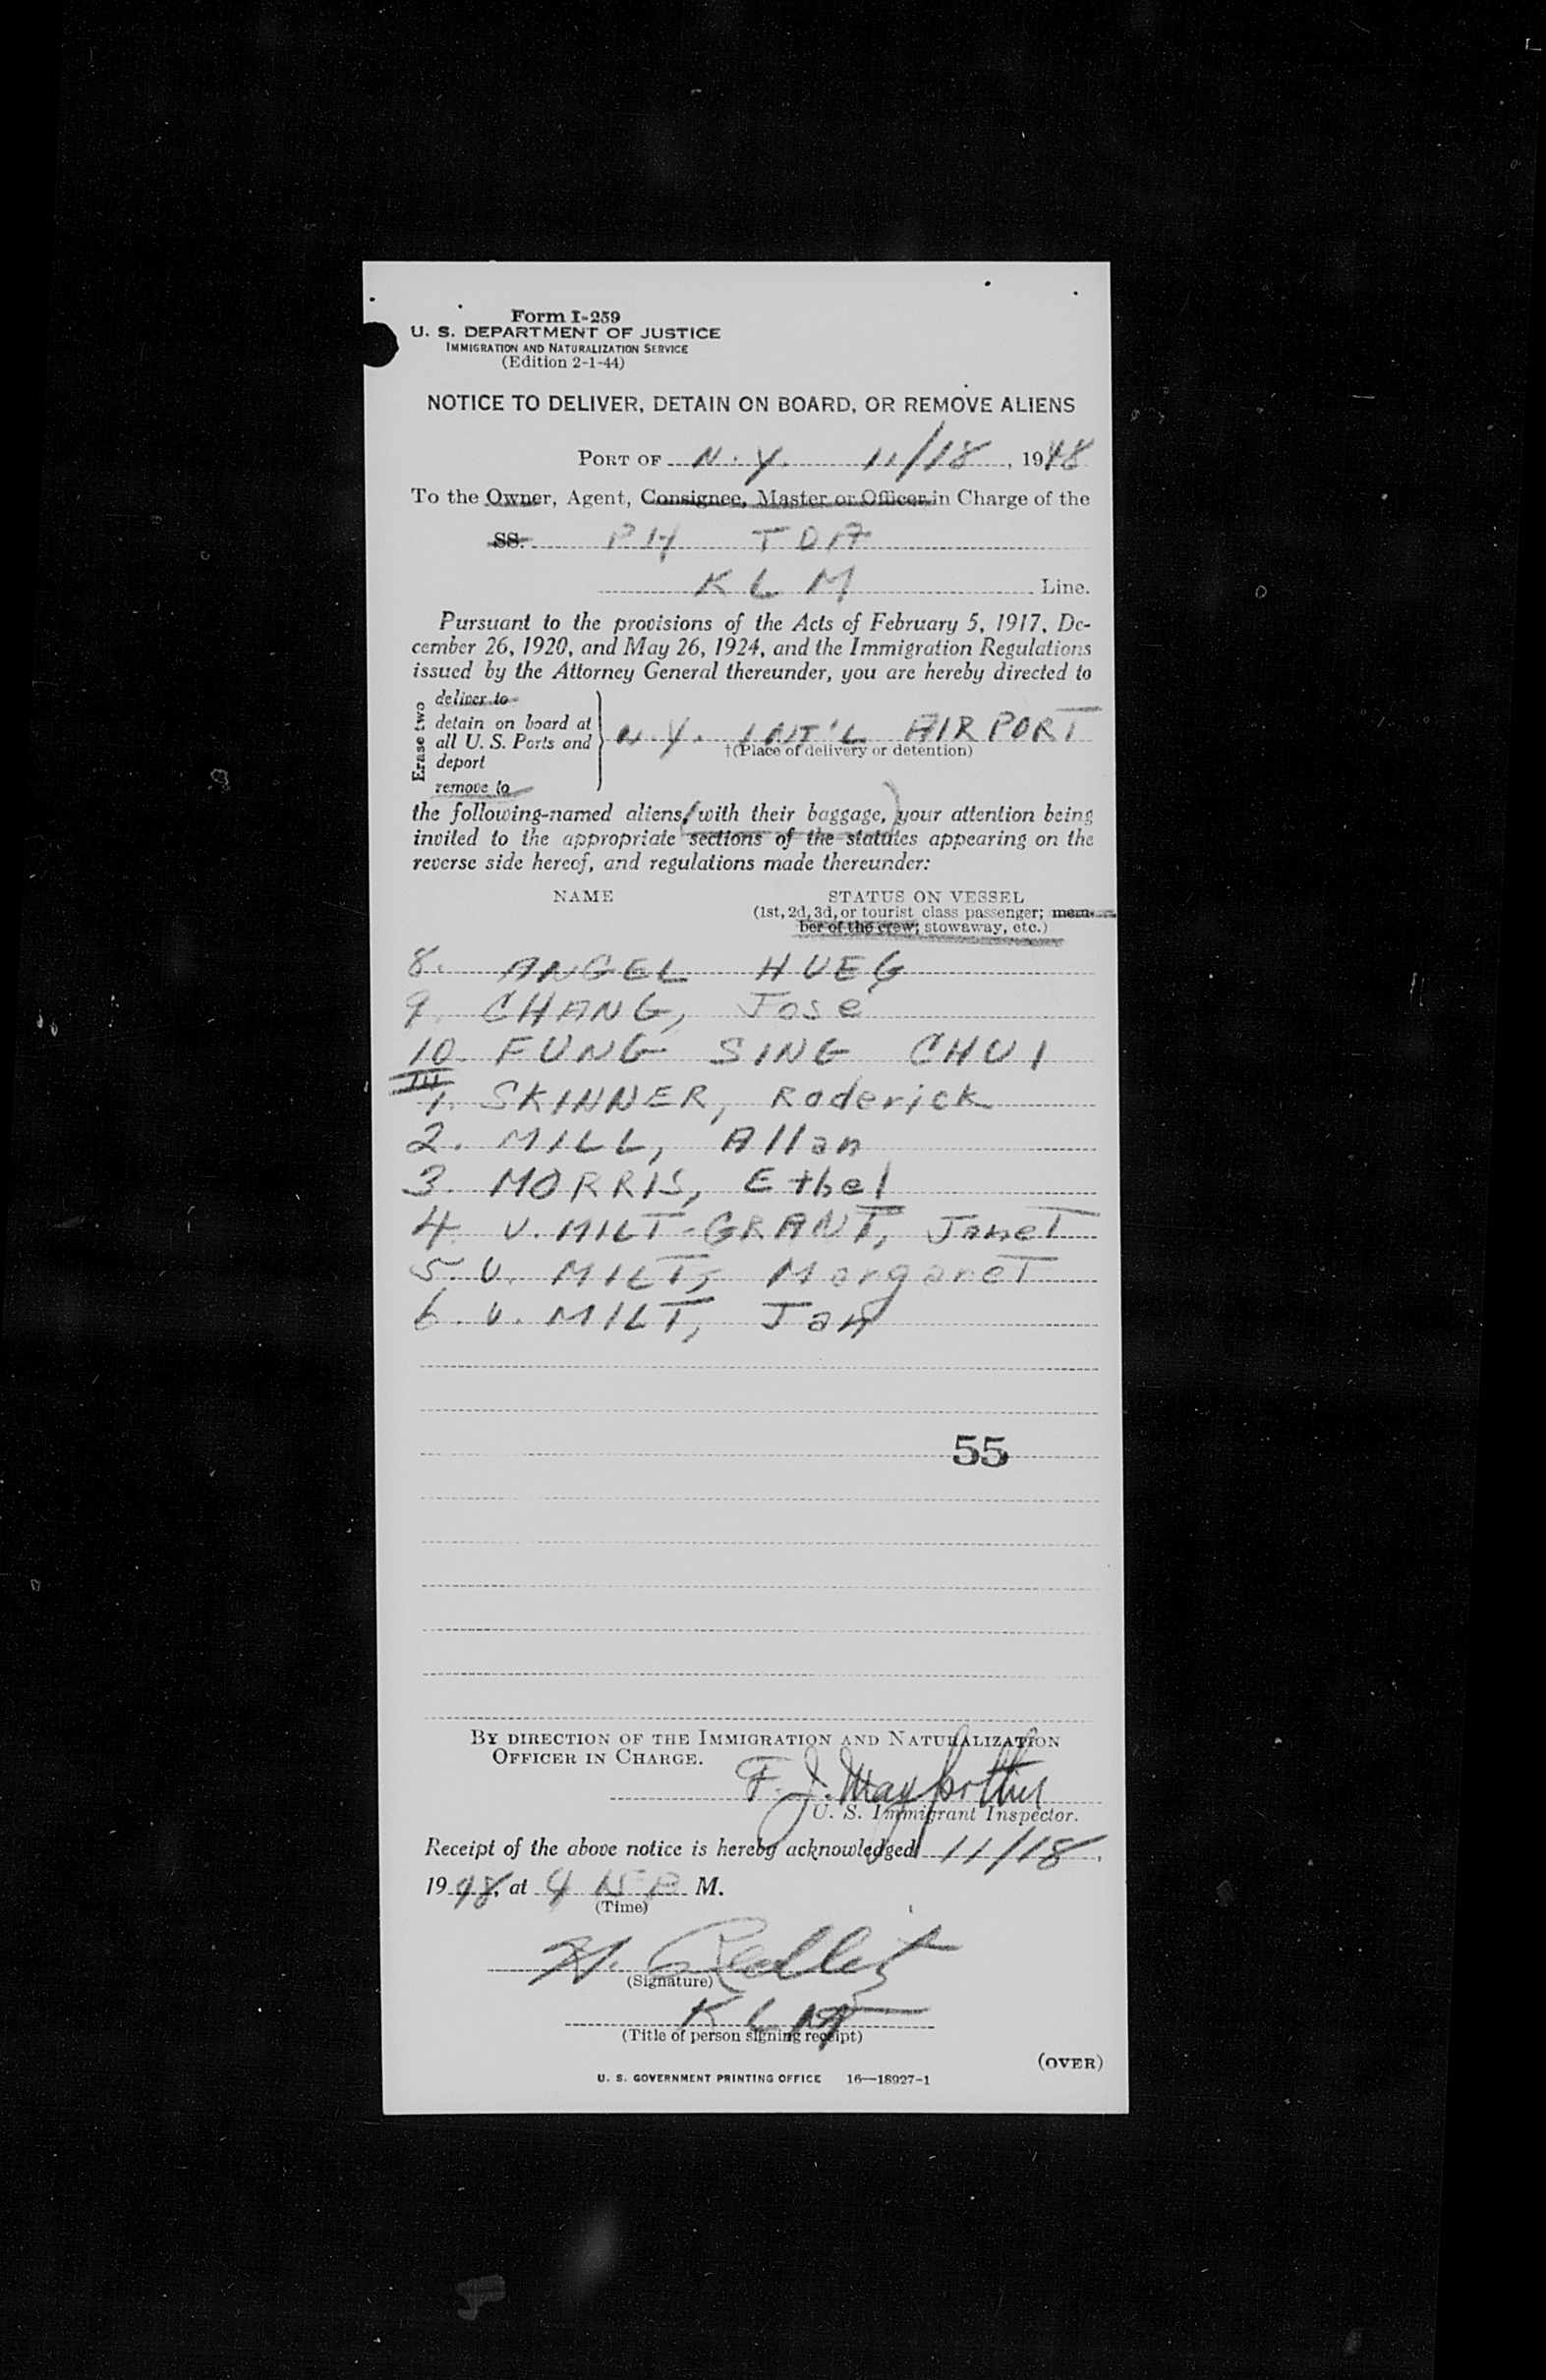 Form I-259
U. S. DEPARTMENT OF JUSTICE
IMMIGRATION AND NATURALIZATION SERVICE
(Edition 2-1-44)
NOTICE TO DELIVER, DETAIN ON BOARD, OR REMOVE ALIENS
PORT OF N. Y. 11/18, 1948
To the Owner, Agent, Consignee, Master or Officer in Charge of the
SS. PH TDA
K L M Line.
Pursuant to the provisions of the Acts of February 5, 1917, De-
cember 26, 1920, and May 26, 1924, and the Immigration Regulations
issued by the Attorney General thereunder, you are hereby directed to
Erase two
deliver to
detain on board at
all U. S. Ports and
deport
remove to
N. Y. INT'L AIRPORT
†(Place of delivery or detention)
the following-named aliens, (with their baggage,) your attention being
invited to the appropriate sections of the statutes appearing on the
reverse side hereof, and regulations made thereunder:
NAME STATUS ON VESSEL
(1st, 2d, 3d, or tourist class passenger; mem-
ber of the crew; stowaway, etc.)
8. ANGEL HUEG
9. CHANG, Jose
10. FUNG SING CHUI
III
1. SKINNER, Roderick
2. MILL, Allan
3. MORRIS, Ethel
4. V. MILT-GRANT, Janet
5. V. MILT, Margaret
6. V. MILT, Jan
55
BY DIRECTION OF THE IMMIGRATION AND NATURALIZATION
OFFICER IN CHARGE.
F. J. 
U. S. Immigrant Inspector.
Receipt of the above notice is hereby acknowledged 11/18,
1948, at 4 P M.
(Time)
H.
(Signature)
K L M
(Title of person signing receipt)
(OVER)
U. S. GOVERNMENT PRINTING OFFICE 16—18927-1